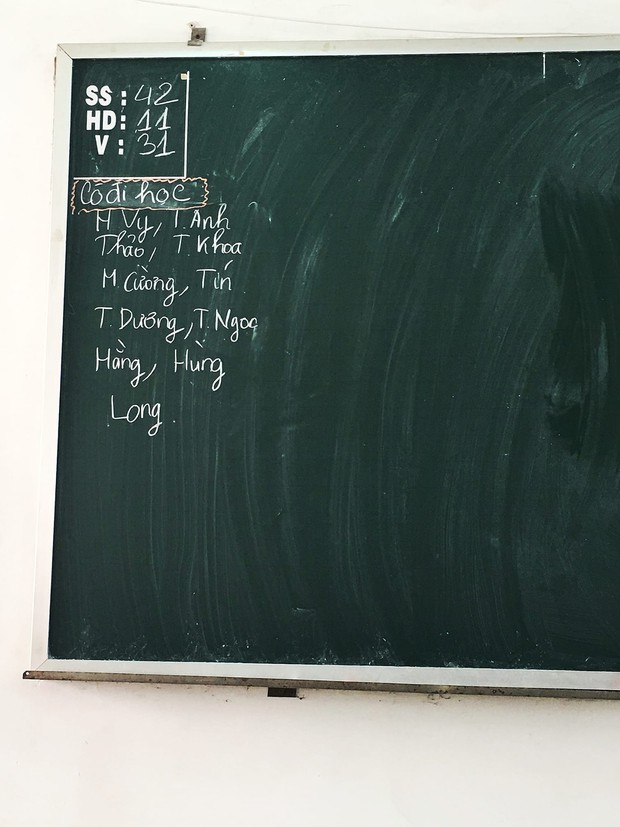 SS : 42
HD: 11
V : 31
Có đi học
M Vy, T. Anh
Thảo, T. Khoa
M Cường, Tín
T. Dương, T. Ngọc
Hằng, Hùng
Long.